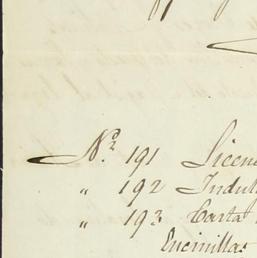 No. 191 Licen
" 192 Indul
" 193 Carta
Encinillas